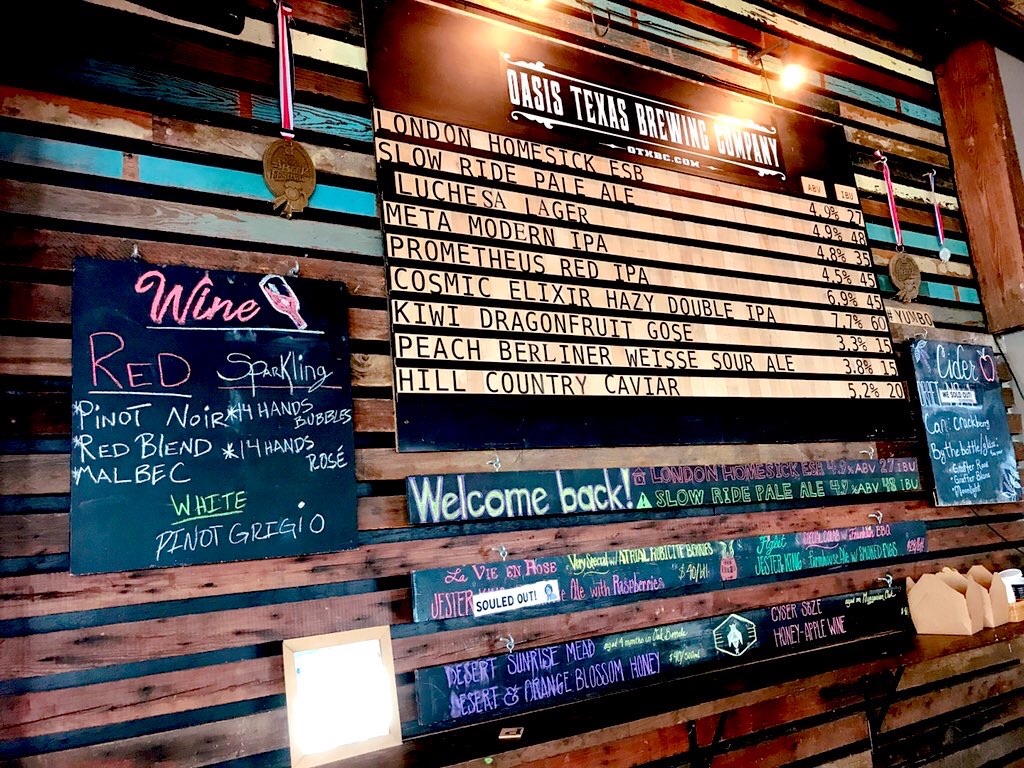 OASIS TEXAS BREWING COMPANY
OTXBC.COM
ABV IBU
LONDON HOMESICK ESB 4.9% 27
SLOW RIDE PALE ALE 4.9% 48
LUCHESA LAGER 4.8% 35
META MODERN IPA 4.5% 45
PROMETHEUS RED IPA 6.9% 45
COSMIC ELIXIR HAZY DOUBLE IPA 7.7% 60
KIWI DRAGONFRUIT GOSE 3.3% 15
PEACH BERLINER WEISSE SOUR ALE 3.8% 15
HILL COUNTRY CAVIAR 5.2% 20
#YUMBO
Wine
RED
*PINOT NOIR
*RED BLEND
*MALBEC
SPARKling
*14 HANDS
BUBBLES
*14 HANDS
ROSÉ
WHITE
PINOT GRIGIO
Cider
WE SOLD OUT!
By the bottle/glass
Welcome back!
LONDON HOMESICK ESH 4.9% ABV 27 IBU
SLOW RIDE PALE ALE 4.9% ABV 48 IBU
LA VIE EN ROSE
JESTER
SOULED OUT!
Ale with Raspberries
$40/btl
JESTER KING
farmhouse Ale w/ SMOKED FIGS
DESERT SUNRISE MEAD aged 4 months in Oak Barrels
DESERT & ORANGE BLOSSOM HONEY $40/500ml
CYSER
HONEY-APPLE WINE